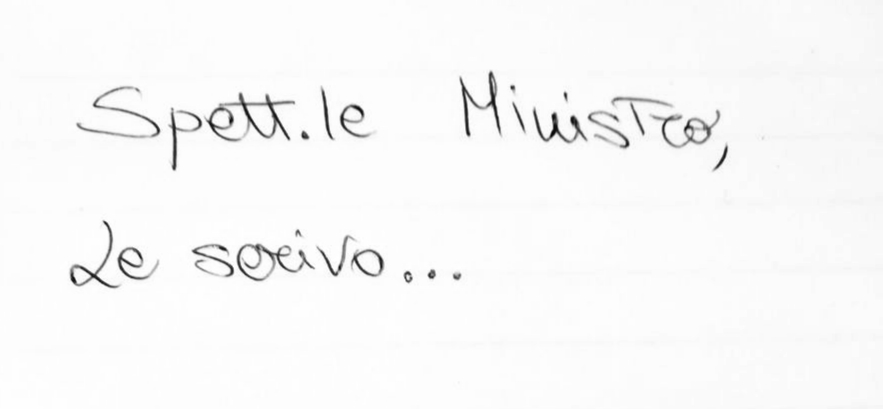 Spett.le Ministro,
Le scrivo...